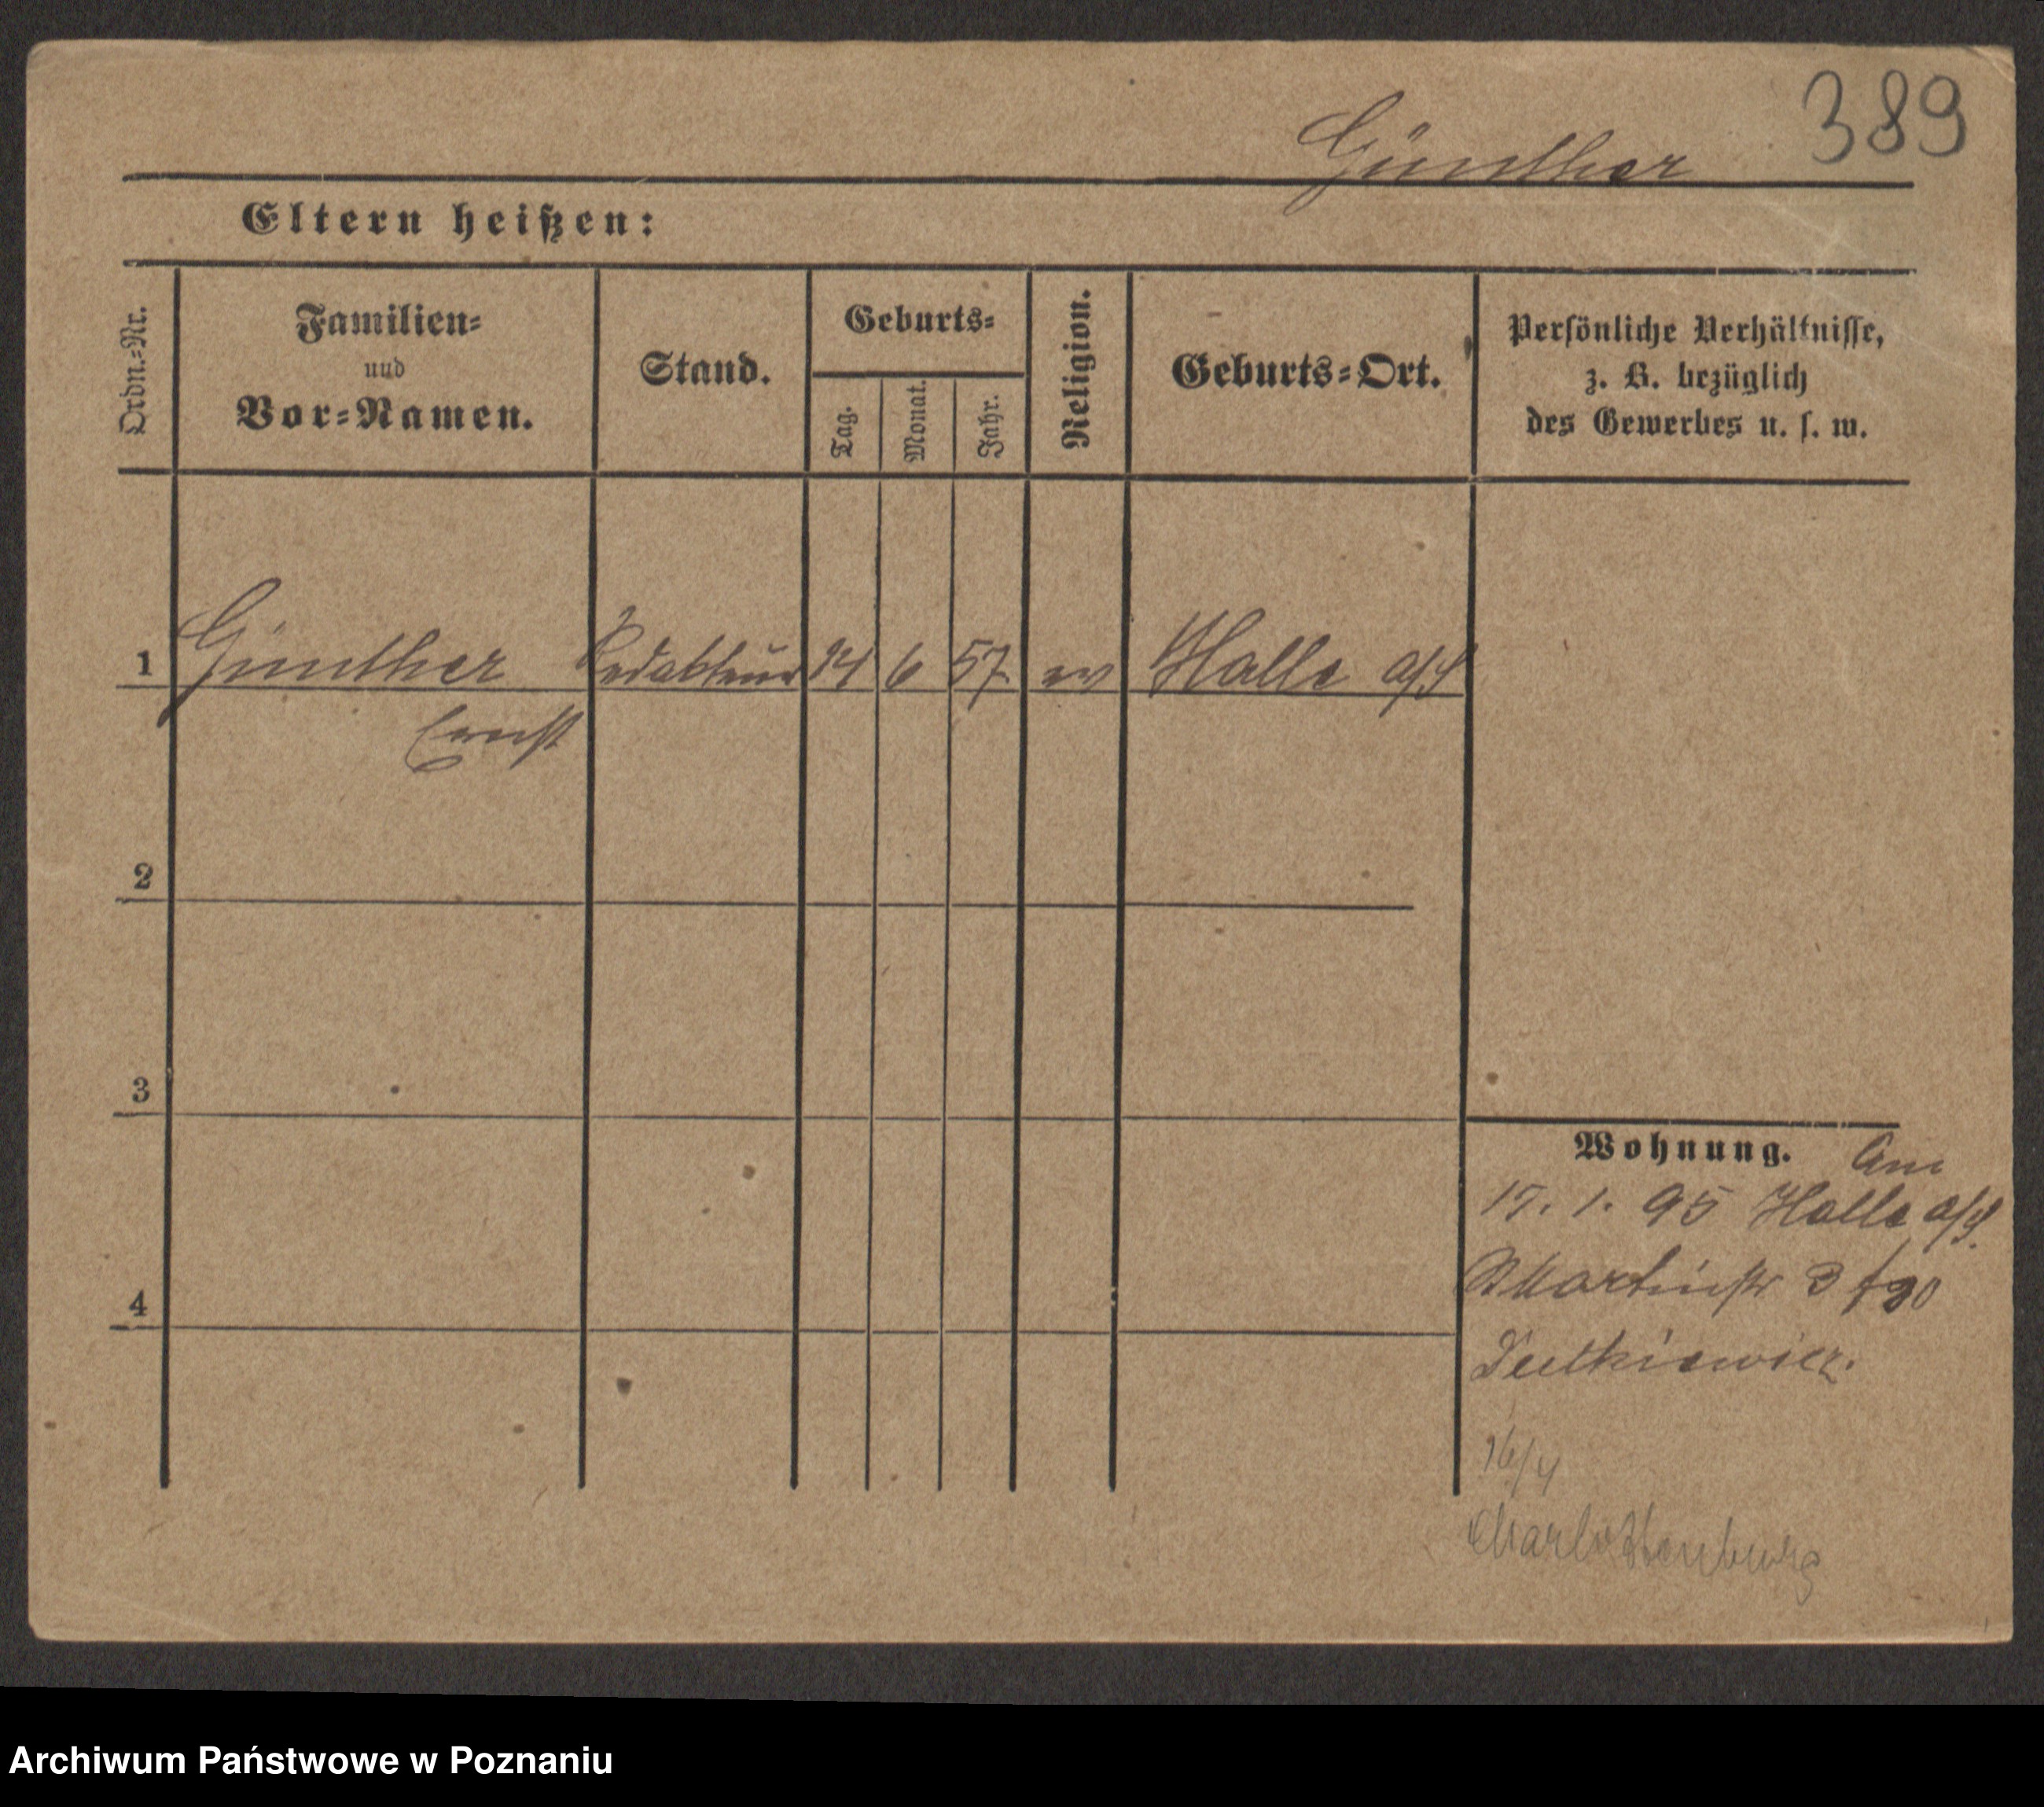 389
Günther
Eltern heißen:
Ordn.-Nr.
Familien-
und
Vor-Namen.
Stand.
Geburts-
Tag.
Monat.
Jahr.
Religion.
Geburts-Ort.
Persönliche Verhältnisse,
z. B. bezüglich
des Gewerbes u. s. w.
1 Günther Redakteur 14 6 57 ev Halle a/S
Ernst
2
3
4
Wohnung. Am
17. 1. 95 Halle a/S.
Martinstr 3
Dutkiewicz.
16/4
Charlottenburg
Archiwum Państwowe w Poznaniu